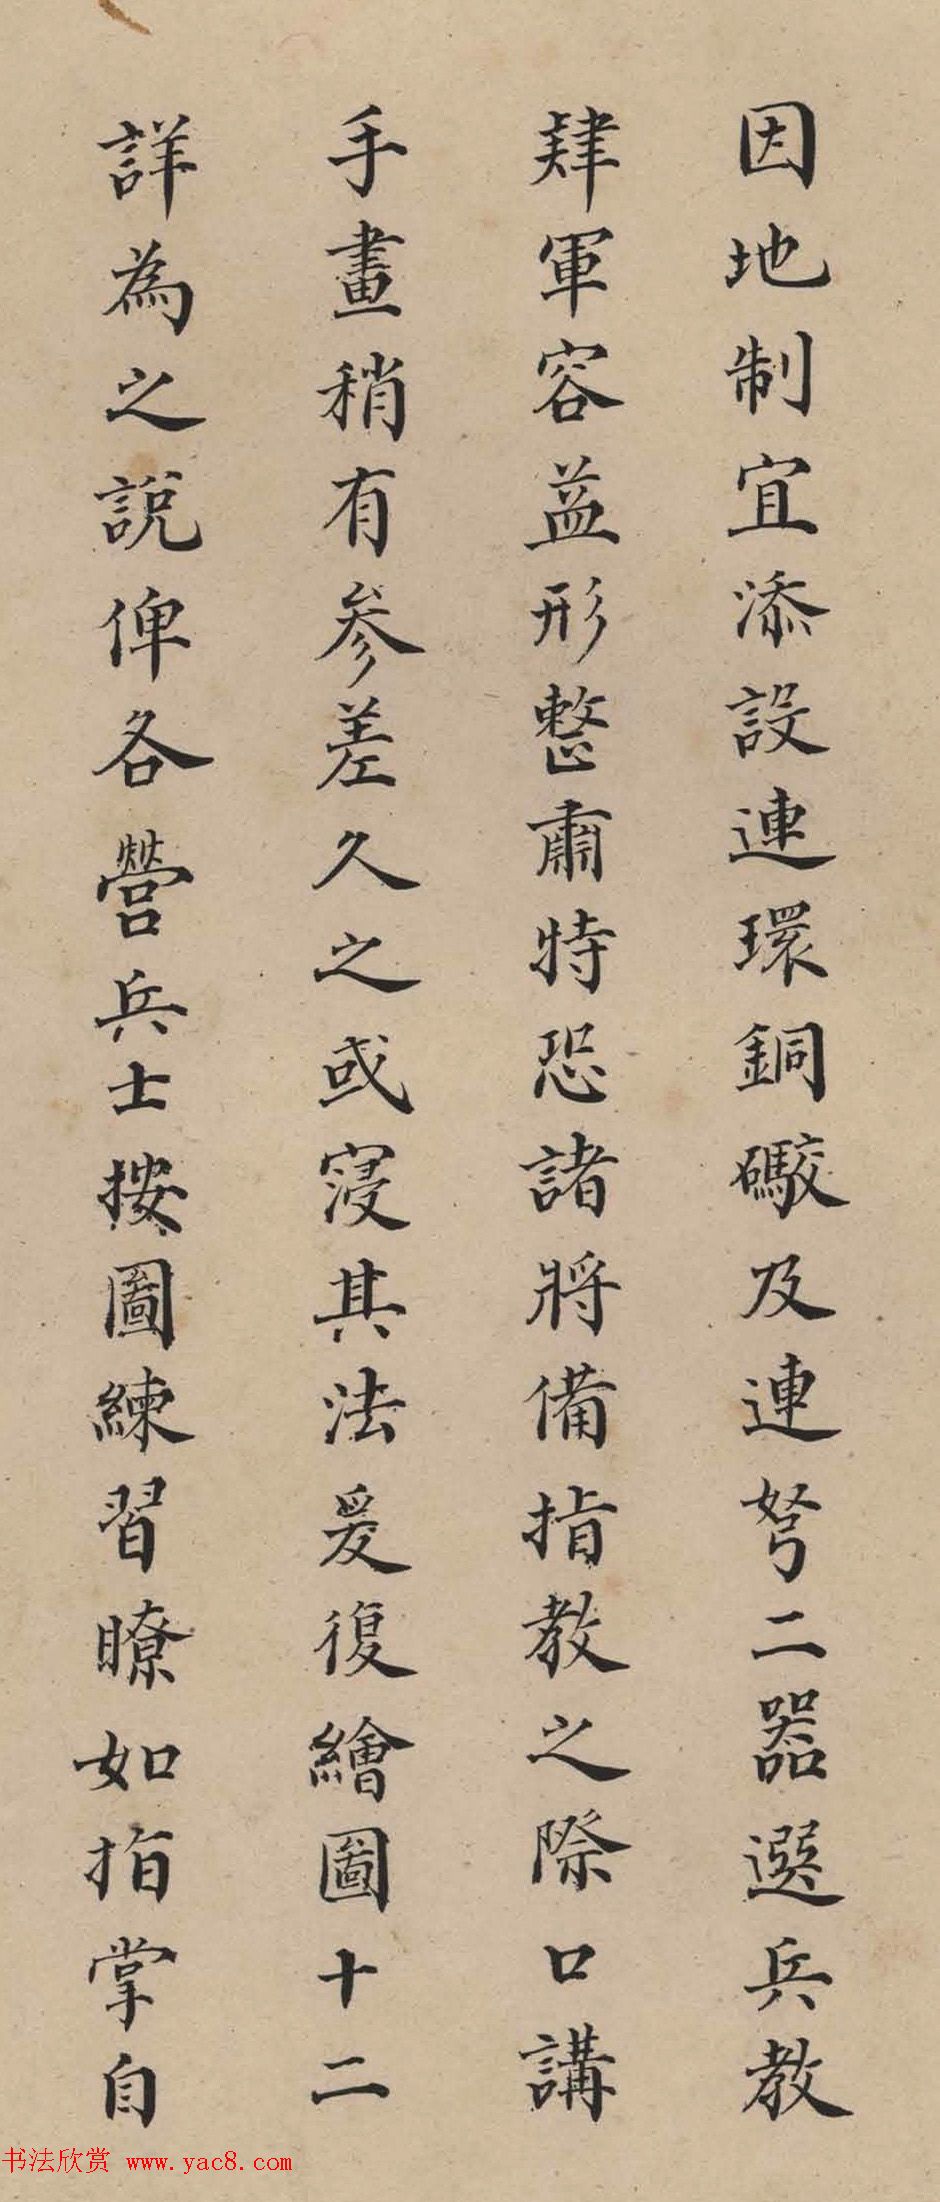 因地制宜添設連環銅礮及連弩二器選兵教
肄軍容益形整肅特恐諸將備指教之際口講
手畫稍有參差久之或寖其法爰復繪圖十二
詳為之說俾各營兵士按圖練習瞭如指掌自
书法欣赏 www.yac8.com